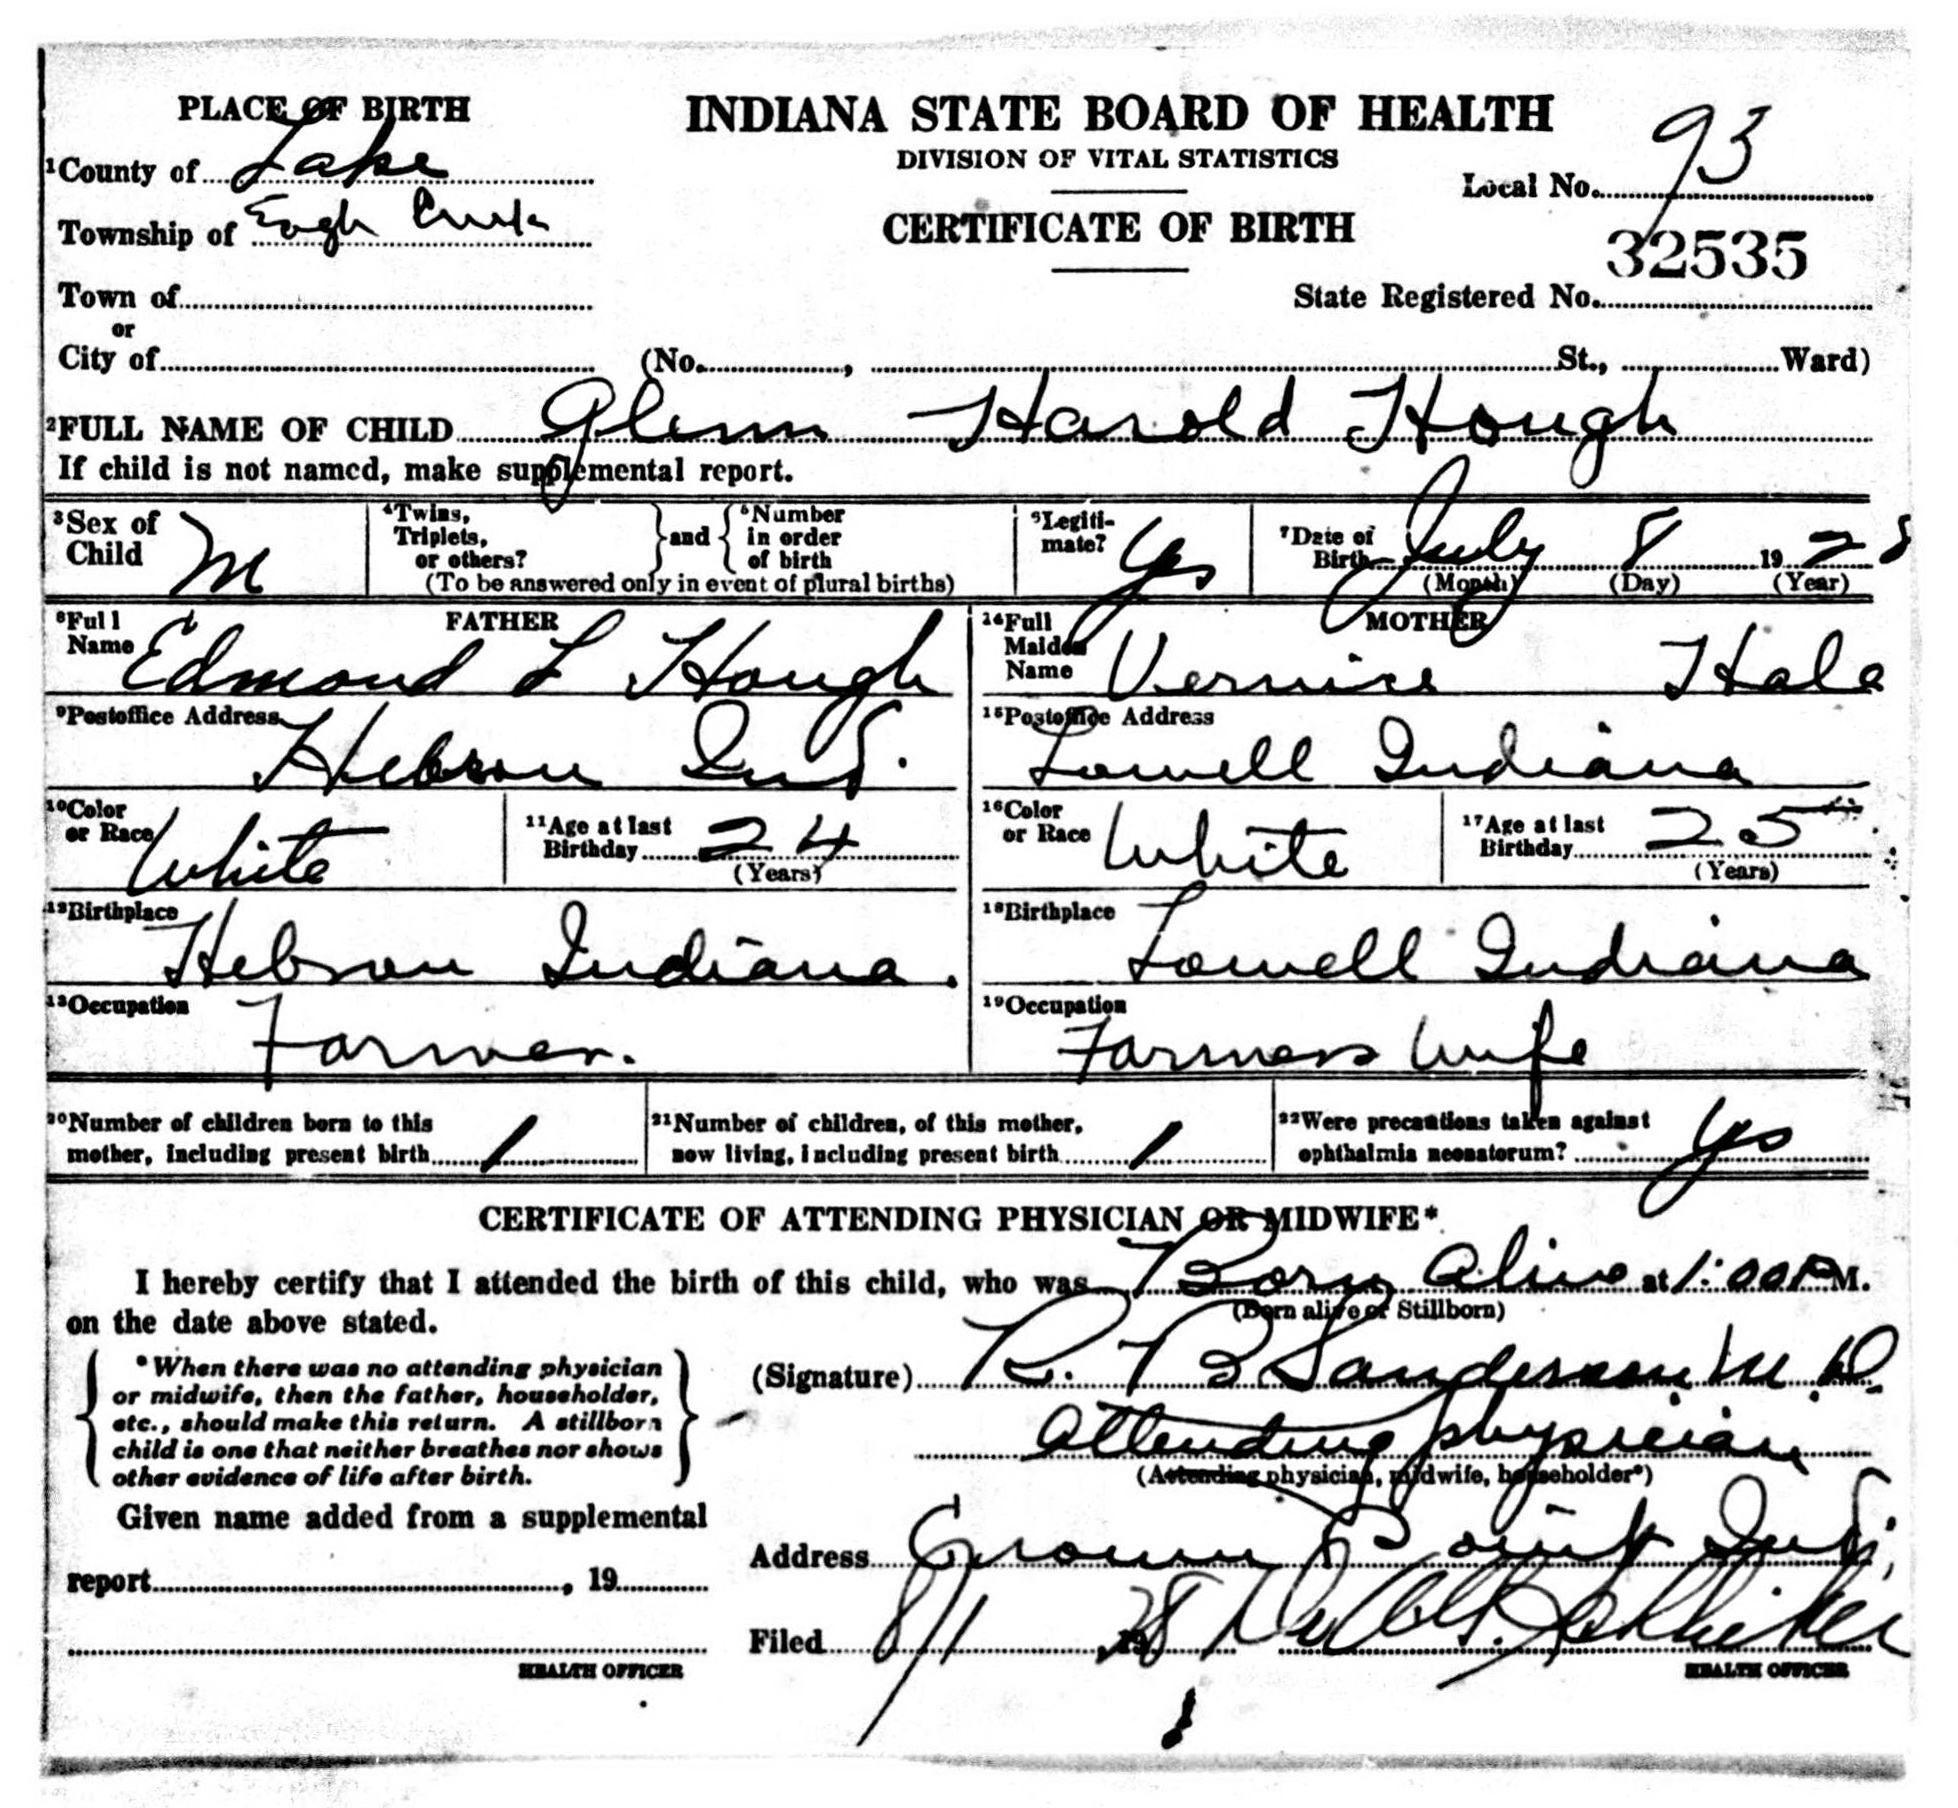 PLACE OF BIRTH
INDIANA STATE BOARD OF HEALTH
DIVISION OF VITAL STATISTICS
CERTIFICATE OF BIRTH
1 County of Lake
Township of Eagle Creek
Town of
or
City of (No. , St., Ward)
Local No. 93
32535
State Registered No.
2 FULL NAME OF CHILD Glenn Harold Hough
If child is not named, make supplemental report.
3 Sex of Child M
4 Twins, Triplets, or others? and 5 Number in order of birth
(To be answered only in event of plural births)
6 Legitimate? Yes
7 Date of Birth July 8 1928
(Month) (Day) (Year)
FATHER
8 Full Name Edmond L Hough
9 Postoffice Address Hebron Ind.
10 Color or Race White
11 Age at last Birthday 24
(Years)
12 Birthplace Hebron Indiana.
13 Occupation Farmer.
MOTHER
14 Full Maiden Name Vernice Hale
15 Postoffice Address Lowell Indiana
16 Color or Race White
17 Age at last Birthday 25
(Years)
18 Birthplace Lowell Indiana
19 Occupation Farmers Wife
20 Number of children born to this mother, including present birth 1
21 Number of children, of this mother, now living, including present birth 1
22 Were precautions taken against ophthalmia neonatorum? Yes
CERTIFICATE OF ATTENDING PHYSICIAN OR MIDWIFE*
I hereby certify that I attended the birth of this child, who was Born Alive at 1:00 P M.
(Born alive or Stillborn)
on the date above stated.
*When there was no attending physician
or midwife, then the father, householder,
etc., should make this return. A stillborn
child is one that neither breathes nor shows
other evidence of life after birth.
(Signature) R. B Sanderson M.D.
Attending physician
(Attending physician, midwife, householder*)
Given name added from a supplemental
report , 19
HEALTH OFFICER
Address Crown Point Ind.
Filed 8/1, 1928
HEALTH OFFICER